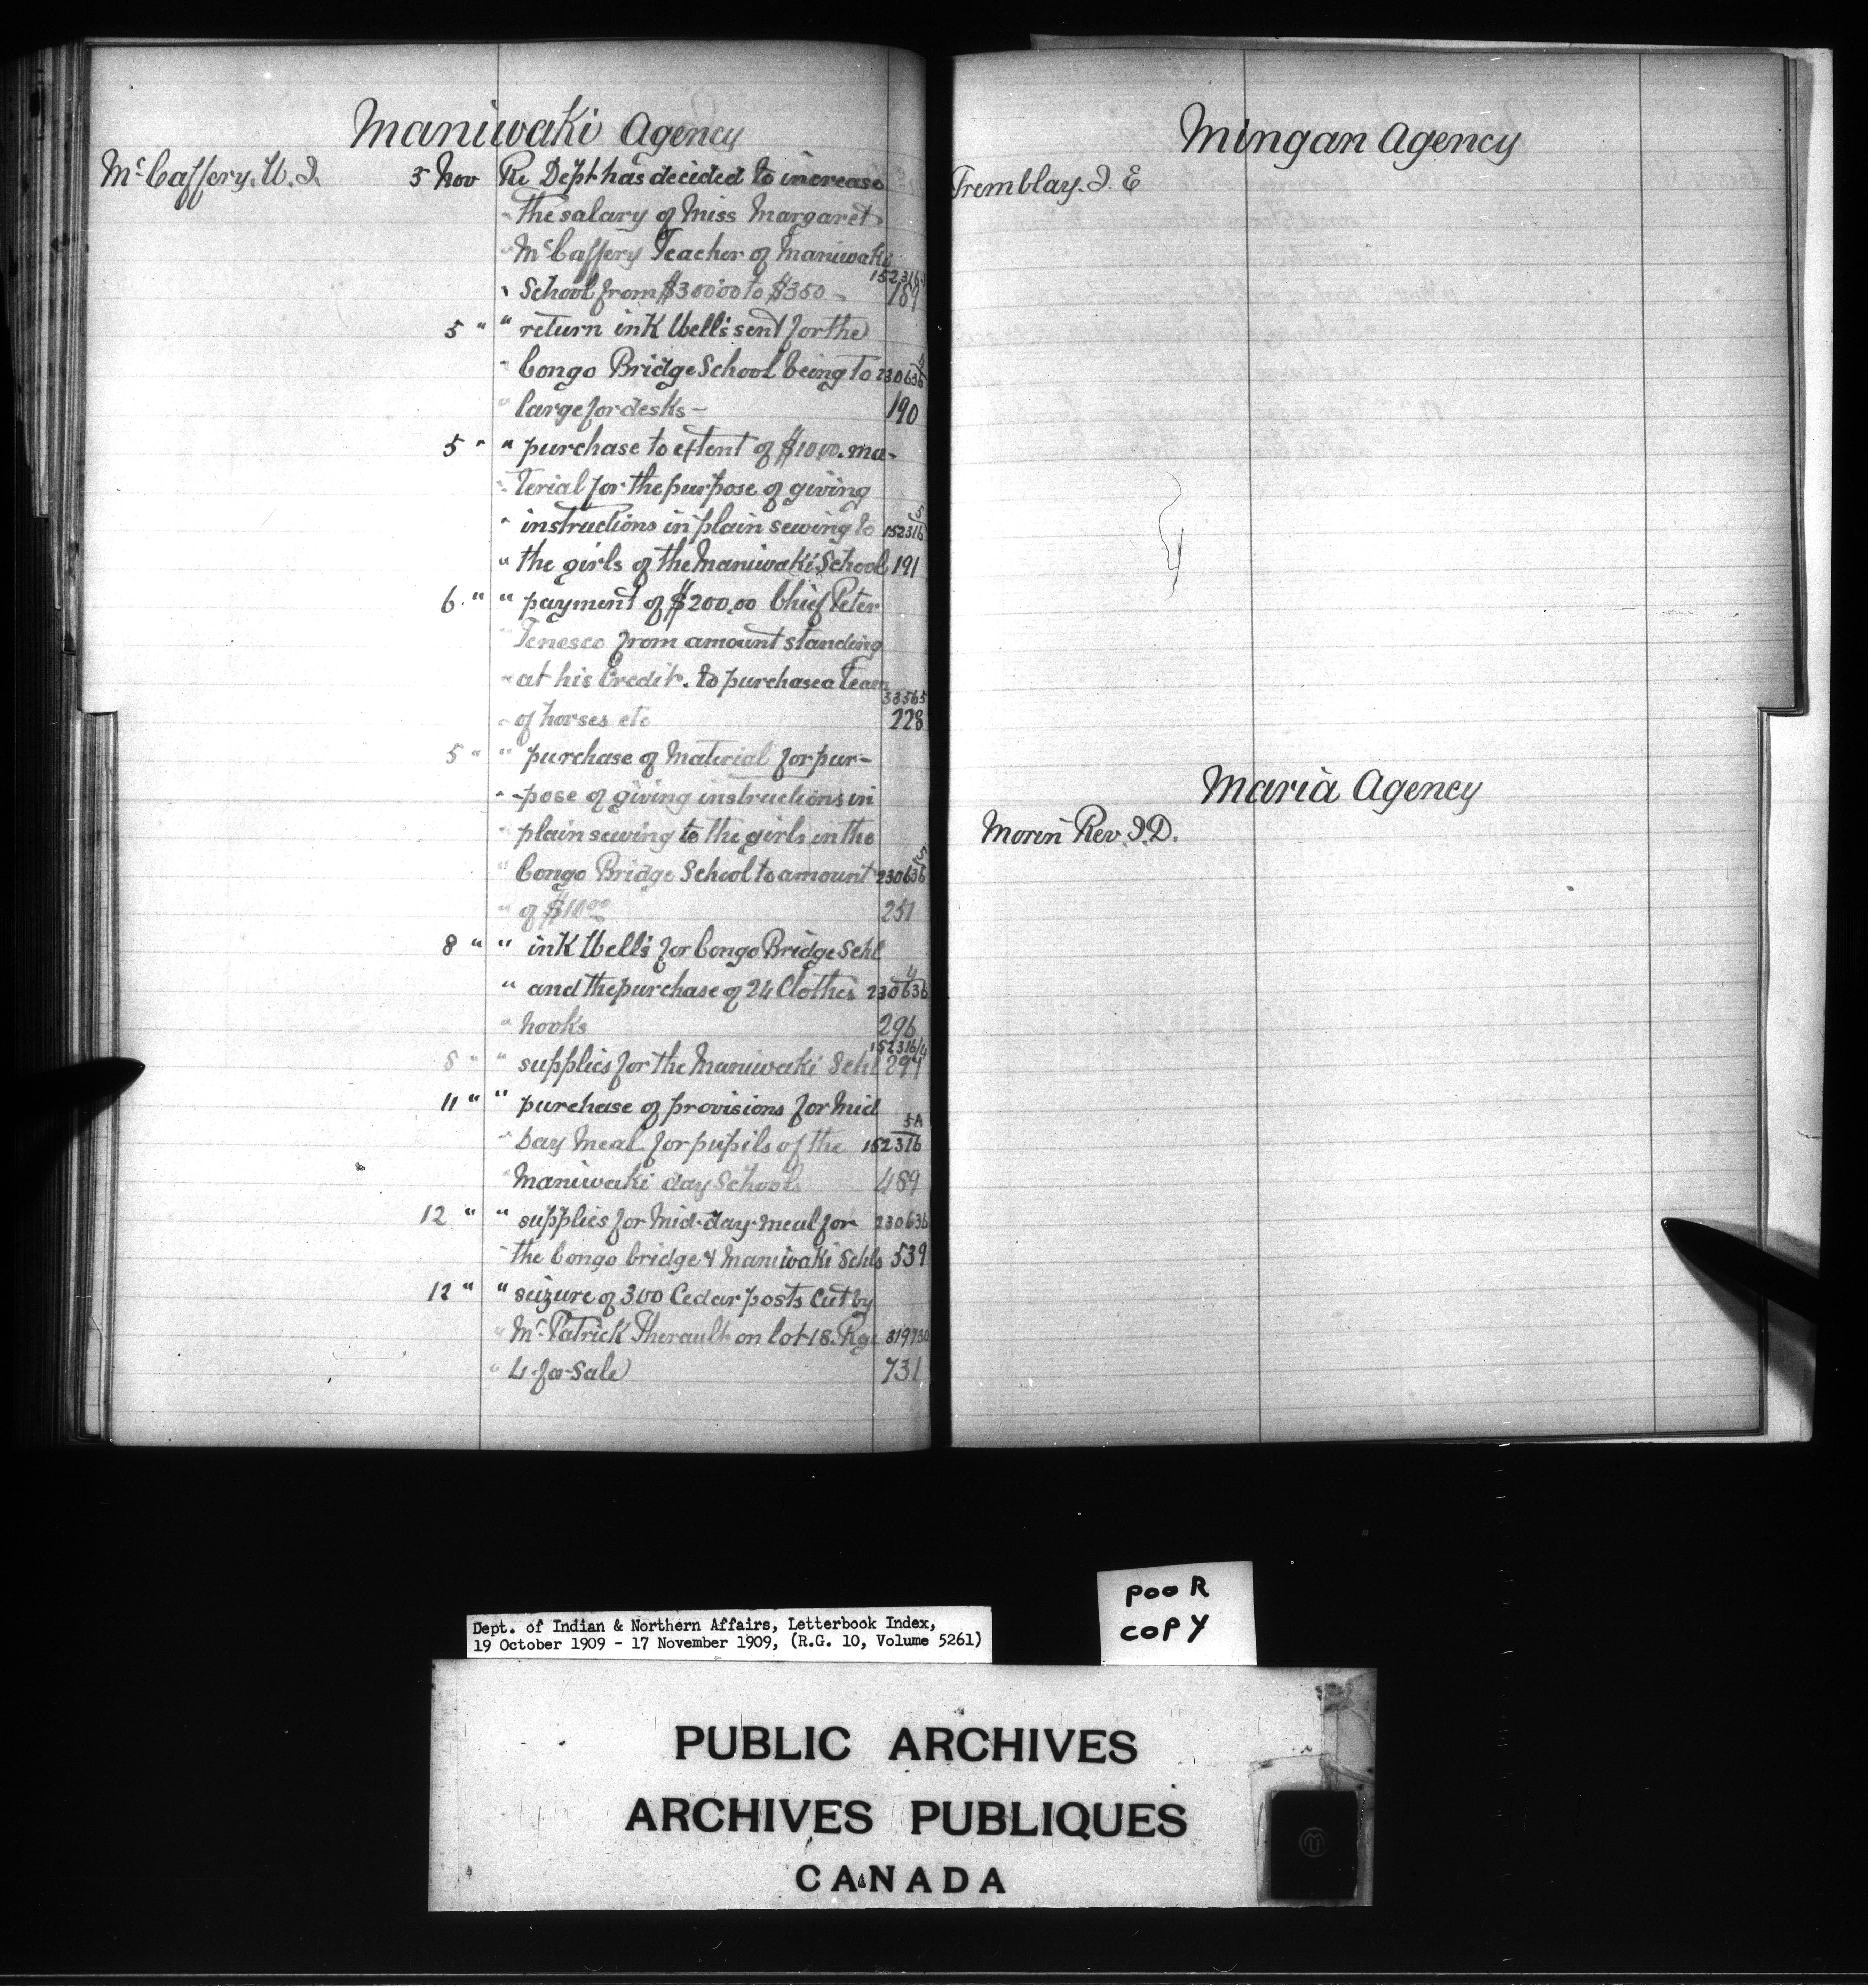 Maniwaki Agency
McCaffery. W. J. 5 Nov Re Dept has decided to increase
" the salary of Miss Margaret
" McCaffery Teacher of Maniwaki
152316/4
" School from $300.00 to $350 - 189
5 " " return ink Wells sent for the
4
" Congo Bridge School being to 230636
" large for desks - 190
5 " " purchase to extent of $10.00. ma-
" terial for the purpose of giving
5
" instructions in plain sewing to 152316
" the girls of the Maniwaki School 191
6 " " payment of $200.00 Chief Peter
" Tenesco from amount standing
" at his Credit. to purchase a Team
33565
" of horses etc 228
5 " " purchase of Material for pur-
" -pose of giving instructions in
" plain sewing to the girls in the
5
" Congo Bridge School to amount 230636
" of $10.00 251
8 " " ink Wells for Congo Bridge Schl
4
" and the purchase of 24 Clothes 230636
" hooks 296
152316/4
8 " " supplies for the Maniwaki Schl 297
11 " " purchase of provisions for Mid
5A
" Day Meal for pupils of the 152316
" Maniwaki day Schools 489
12 " " supplies for Mid-day-meal for 230636
" the Congo bridge & Maniwaki Schls 539
12 " " seizure of 300 Cedar posts Cut by
" Mr. Patrick Therault on lot 18. Rge 319730
" 4 for Sale 731
Mingan Agency
Tremblay. J. E
Maria Agency
Morin Rev. J. D.
Dept. of Indian & Northern Affairs, Letterbook Index,
19 October 1909 - 17 November 1909, (R.G. 10, Volume 5261)
pooR
copy
PUBLIC ARCHIVES
ARCHIVES PUBLIQUES
CANADA